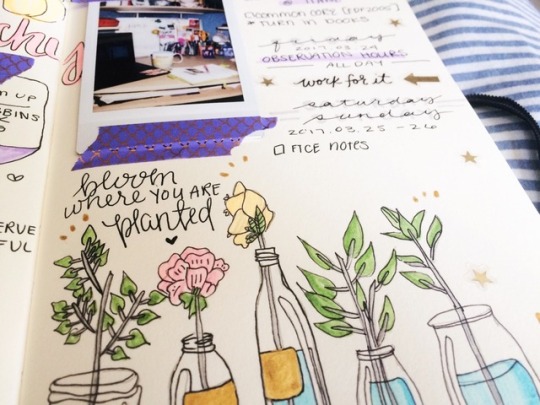 UP
BBINS
ERVE
FUL
common core (PD2003)
* TURN IN BOOKS
friday
2017.03.24
OBSERVATION HOURS
ALL DAY
work for it
saturday
sunday
2017.03.25 - 26
FICE NOTES
bloom
where YOU ARE
planted